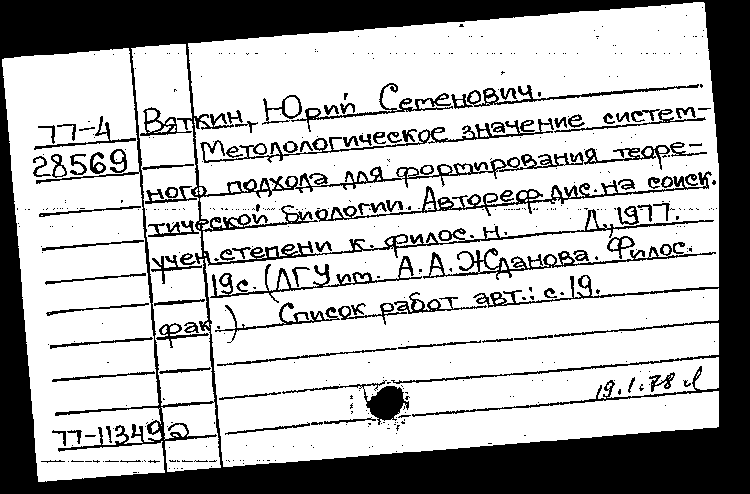 77-4 Вяткин, Юрий Семенович.
28569 Методологическое значение систем-
ного подхода для формирования теоре-
тической биологии. Автореф. дис. на соиск.
учен. степени к. филос. н. Л., 1977.
19с. (ЛГУ им. А.А. Жданова. Филос.
фак.). Список работ авт.: с. 19.
19.1.78
77-11349